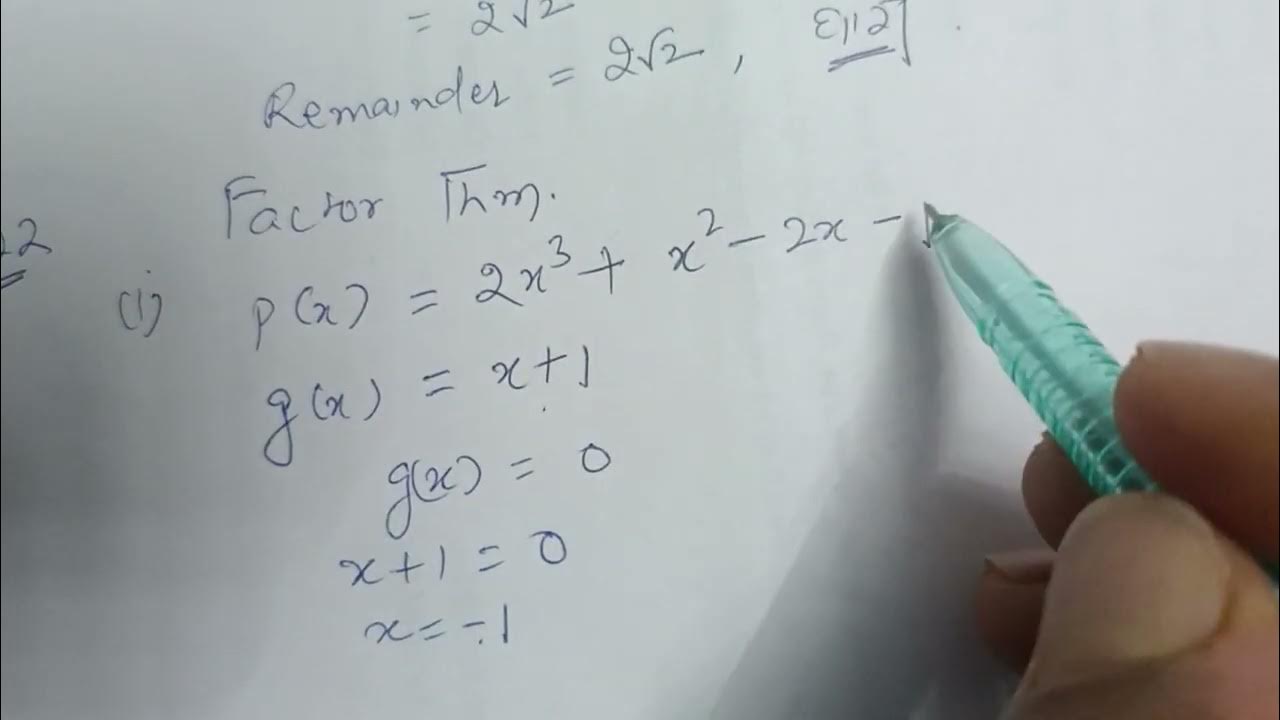 = 2√2
Remainder = 2√2,
Factor Thm.
(i) p(x) = 2x³ + x² - 2x - 1
g(x) = x+1
g(x) = 0
x+1 = 0
x = -1